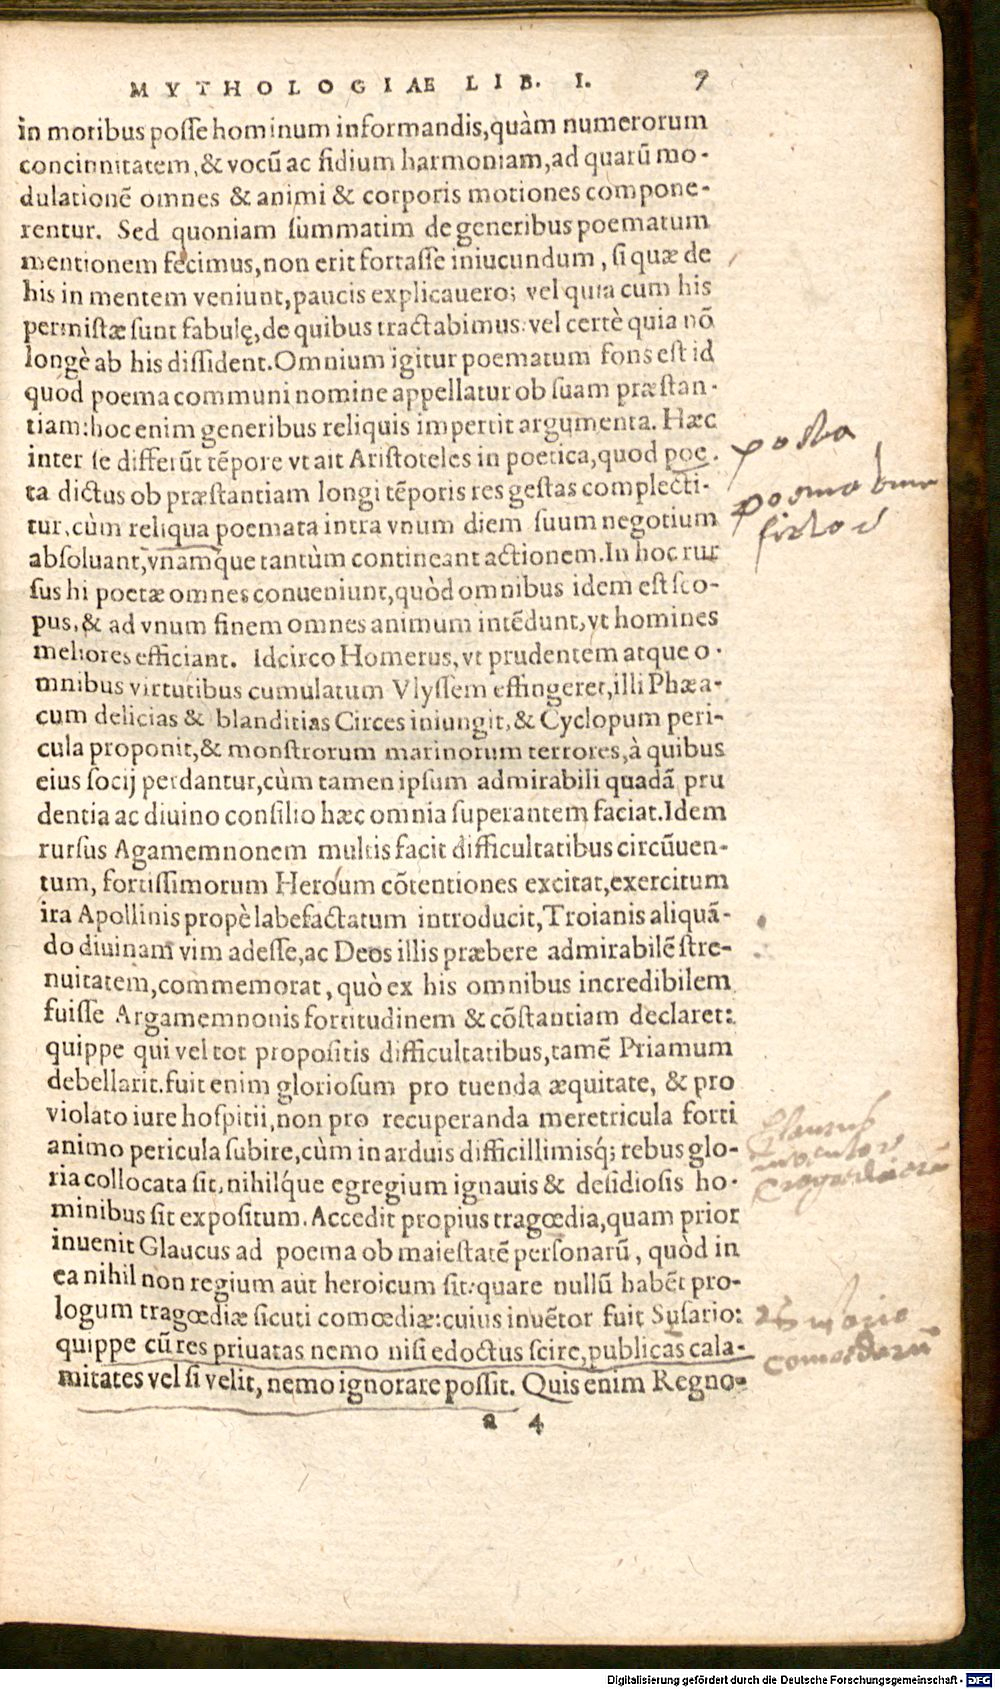 MYTHOLOGIAE LIB. I. 7
in moribus posse hominum informandis, quàm numerorum
concinnitatem, & vocũ ac fidium harmoniam, ad quarũ mo-
dulationẽ omnes & animi & corporis motiones compone-
rentur. Sed quoniam summatim de generibus poematum
mentionem fecimus, non erit fortasse iniucundum, si quæ de
his in mentem veniunt, paucis explicauero; vel quia cum his
permistæ sunt fabulę, de quibus tractabimus: vel certè quia nõ
longè ab his dissident. Omnium igitur poematum fons est id
quod poema communi nomine appellatur ob suam præstan-
tiam: hoc enim generibus reliquis impertit argumenta. Hæc
inter se differũt tẽpore vt ait Aristoteles in poetica, quod poe-
ta dictus ob præstantiam longi tẽporis res gestas complecti-
tur, cùm reliqua poemata intra vnum diem suum negotium
absoluant, vnamque tantùm contineant actionem. In hoc rur
sus hi poetæ omnes conueniunt, quòd omnibus idem est sco-
pus, & ad vnum finem omnes animum intẽdunt, vt homines
meliores efficiant. Idcirco Homerus, vt prudentem atque o-
mnibus virtutibus cumulatum Vlyssem effingeret, illi Phæa-
cum delicias & blanditias Circes iniungit, & Cyclopum peri-
cula proponit, & monstrorum marinorum terrores, à quibus
eius socij perdantur, cùm tamen ipsum admirabili quadã pru
dentia ac diuino consilio hæc omnia superantem faciat. Idem
rursus Agamemnonem multis facit difficultatibus circũuen-
tum, fortissimorum Heroum cõtentiones excitat, exercitum
ira Apollinis propè labefactatum introducit, Troianis aliquã-
do diuinam vim adesse, ac Deos illis præbere admirabilẽ stre-
nuitatem, commemorat, quò ex his omnibus incredibilem
fuisse Argamemnonis fortitudinem & cõstantiam declaret:
quippe qui vel tot propositis difficultatibus, tamẽ Priamum
debellarit. fuit enim gloriosum pro tuenda æquitate, & pro
violato iure hospitii, non pro recuperanda meretricula forti
animo pericula subire, cùm in arduis difficillimisq́; rebus glo-
ria collocata sit, nihilq́ue egregium ignauis & desidiosis ho-
minibus sit expositum. Accedit propius tragœdia, quam prior
inuenit Glaucus ad poema ob maiestatẽ personarũ, quòd in
ea nihil non regium aut heroicum sit: quare nullũ habẽt pro-
logum tragœdiæ sicuti comœdiæ: cuius inuẽtor fuit Susario:
quippe cũ res priuatas nemo nisi edoctus scire, publicas cala-
mitates vel si velit, nemo ignorare possit. Quis enim Regno-
a 4
poeta
poema
Glaucus
inventor
tragoediarũ
comoediarũ
Digitalisierung gefördert durch die Deutsche Forschungsgemeinschaft - DFG